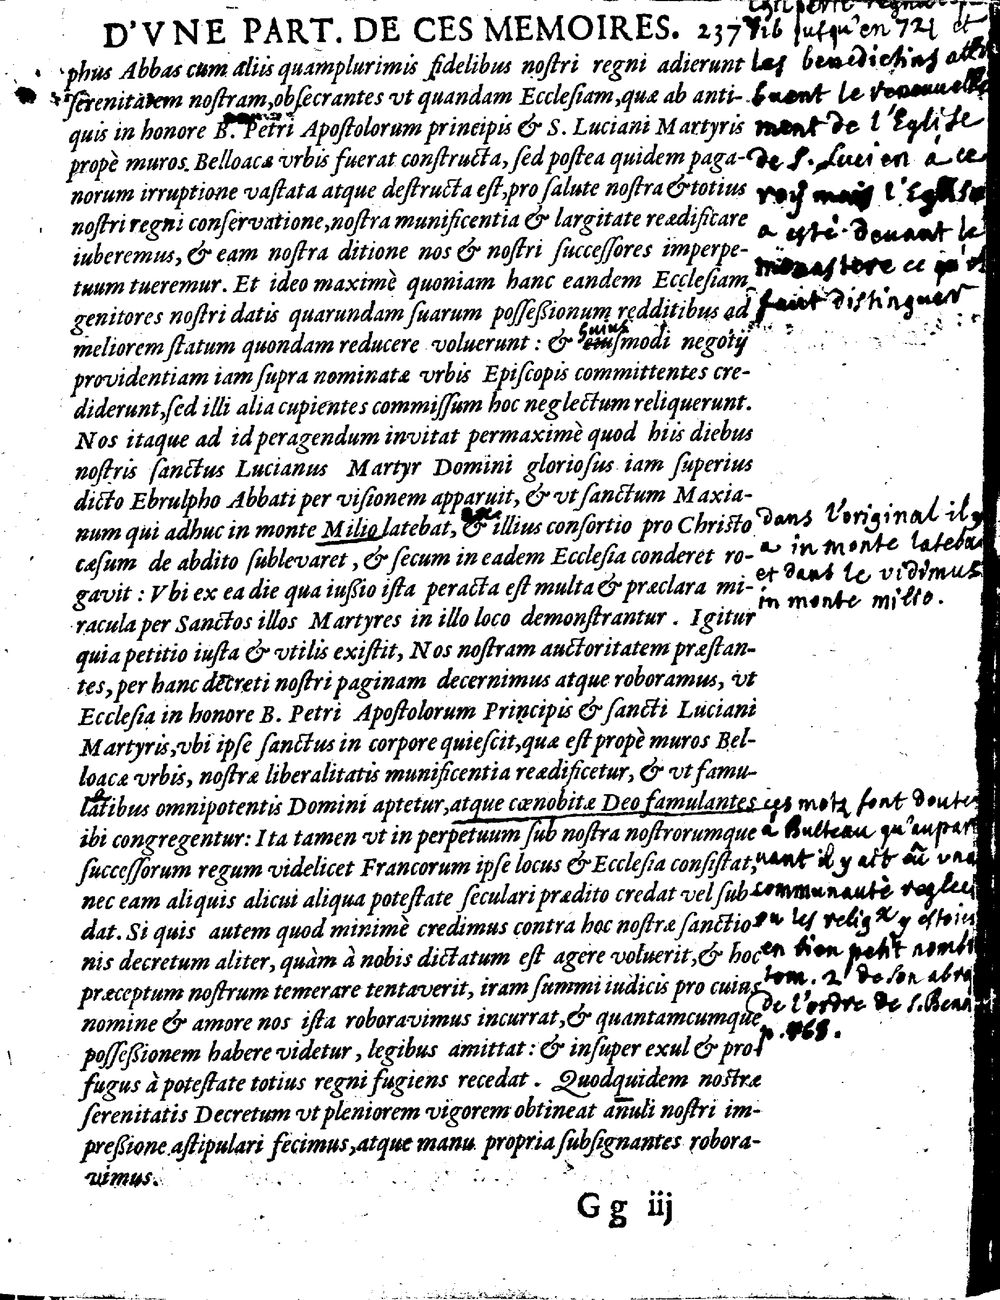 D'VNE PART. DE CES MEMOIRES. 237
phus Abbas cum aliis quamplurimis fidelibus nostri regni adierunt
serenitatem nostram, obsecrantes vt quandam Ecclesiam, quæ ab anti-
quis in honore B. Petri Apostolorum principis & S. Luciani Martyris
propè muros Belloacæ vrbis fuerat constructa, sed postea quidem paga-
norum irruptione vastata atque destructa est, pro salute nostra & totius
nostri regni conservatione, nostra munificentia & largitate reædificare
iuberemus, & eam nostra ditione nos & nostri successores imperpe-
tuum tueremur. Et ideo maximè quoniam hanc eandem Ecclesiam
genitores nostri datis quarundam suarum possessionum redditibus ad
meliorem statum quondam reducere voluerunt : & eiusmodi negotij
huius
providentiam iam supra nominatæ vrbis Episcopis committentes cre-
diderunt, sed illi alia cupientes commissum hoc neglectum reliquerunt.
Nos itaque ad id peragendum invitat permaximè quod hiis diebus
nostris sanctus Lucianus Martyr Domini gloriosus iam superius
dicto Ebrulpho Abbati per visionem apparuit, & vt sanctum Maxia-
num qui adhuc in monte Milio latebat, & illius consortio pro Christo
cæsum de abdito sublevaret, & secum in eadem Ecclesia conderet ro-
gavit : Vbi ex ea die qua iussio ista peracta est multa & præclara mi-
racula per Sanctos illos Martyres in illo loco demonstrantur. Igitur
quia petitio iusta & vtilis existit, Nos nostram auctoritatem præstan-
tes, per hanc decreti nostri paginam decernimus atque roboramus, vt
Ecclesia in honore B. Petri Apostolorum Principis & sancti Luciani
Martyris, vbi ipse sanctus in corpore quiescit, quæ est propè muros Bel-
loacæ vrbis, nostræ liberalitatis munificentia reædificetur, & vt famu-
latibus omnipotentis Domini aptetur, atque cœnobitæ Deo famulantes
ibi congregentur: Ita tamen vt in perpetuum sub nostra nostrorumque
successorum regum videlicet Francorum ipse locus & Ecclesia consistat,
nec eam aliquis alicui aliqua potestate seculari prædito credat vel sub-
dat. Si quis autem quod minimè credimus contra hoc nostræ sanctio-
nis decretum aliter, quàm à nobis dictatum est agere voluerit, & hoc
præceptum nostrum temerare tentaverit, iram summi iudicis pro cuius
nomine & amore nos ista roboravimus incurrat, & quantamcumque
possessionem habere videtur, legibus amittat: & insuper exul & pro-
fugus à potestate totius regni fugiens recedat. Quodquidem nostræ
serenitatis Decretum vt pleniorem vigorem obtineat anuli nostri im-
pressione astipulari fecimus, atque manu propria subsignantes robora-
vimus.
G g iij
jusqu'en 721 et
les benedictins
buent le renouvelle
ment de l'Eglise
de S. Lucien a ce
roy mais l'Eglise
a esté devant le
monastere ce qu'il
faut distinguer
dans l'original il y
a in monte lateba
et dans le vidimus
in monte milio.
ces motz font douter
a Bulteau qu'aupar
auant il y ait eü vne
communauté reglee
ou les relig.x y estoien
en bien petit nombre
tom. 2. de son abre
de l'ordre de S. Ben
p. 768.